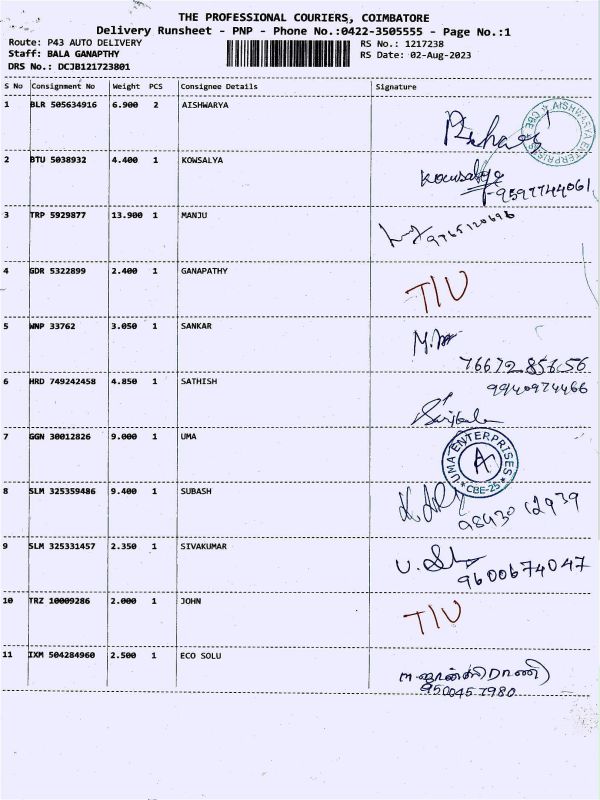 THE PROFESSIONAL COURIERS, COIMBATORE
Delivery Runsheet - PNP - Phone No.:0422-3505555 - Page No.:1
Route: P43 AUTO DELIVERY RS No.: 1217238
Staff: BALA GANAPTHY RS Date: 02-Aug-2023
DRS No.: DCJB121723801
S No Consignment No Weight PCS Consignee Details Signature
1 BLR 505634916 6.900 2 AISHWARYA
AISHWARYA ENTERPRISES CBE
2 BTU 5038932 4.400 1 KOWSALYA Kowsalya
9597744061
3 TRP 5929877 13.900 1 MANJU
9765120696
4 GDR 5322899 2.400 1 GANAPATHY T/U
5 WNP 33762 3.050 1 SANKAR
6 HRD 749242458 4.850 1 SATHISH 9940974466
7 GGN 30012826 9.000 1 UMA
UMA ENTERPRISES A CBE-25
8 SLM 325359486 9.400 1 SUBASH
98430 12939
9 SLM 325331457 2.350 1 SIVAKUMAR
9600674047
10 TRZ 10009286 2.000 1 JOHN T/U
11 IXM 504284960 2.500 1 ECO SOLU